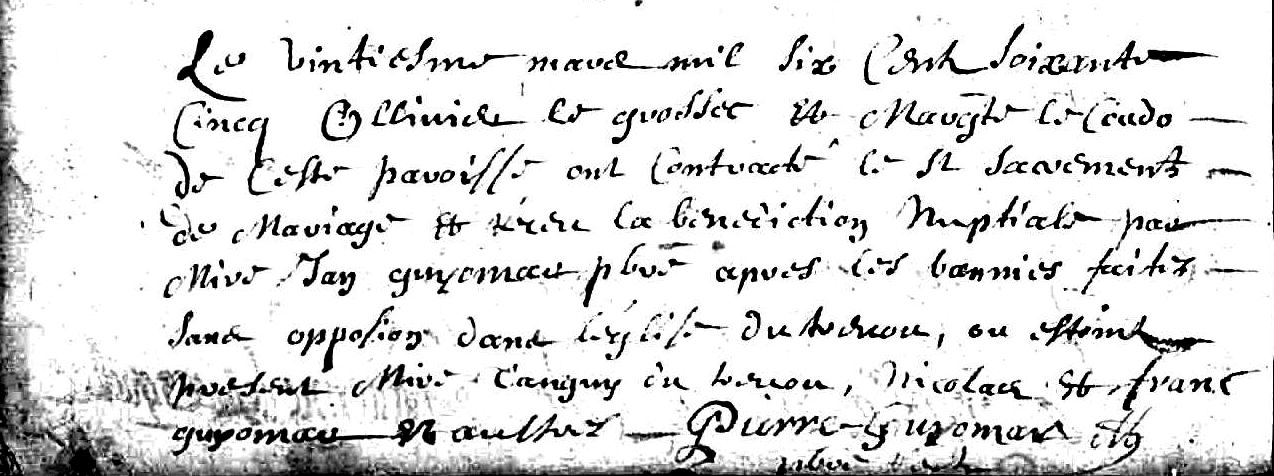 Le vintiesme mars mil six Cent soixante
Cincq Ollivier le grossec et Margte le Coado
de Ceste paroisse ont Contracté le St sacrement
de Mariage et receu la benediction Nuptiale par
Mire Jan guyomar pbre apres les bannies faites
sans opposion dans léglise du treuou, ou estoint
present Mire Tanguy du treuou, Nicolas et franc
guyomar et aultres Pierre Guyomar
pbre